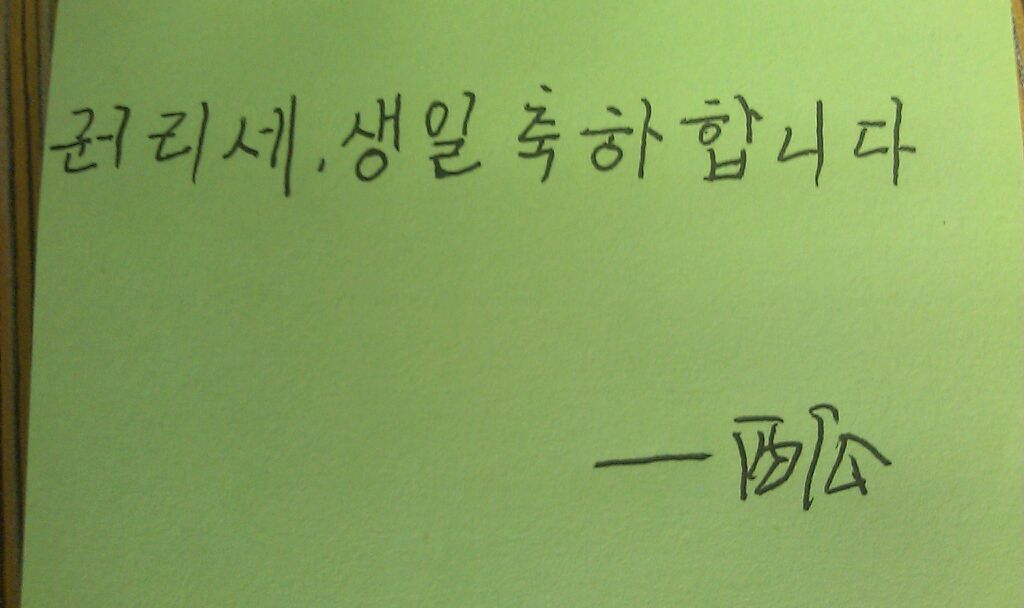 권리세, 생일 축하합니다